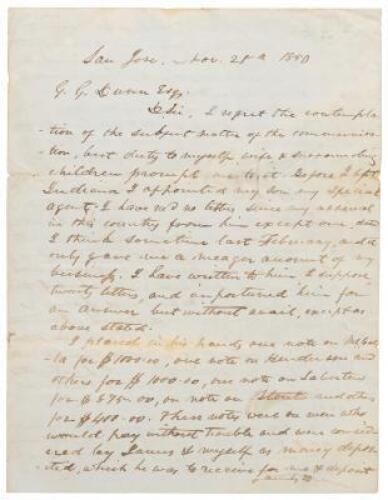 San Jose, Nov. 28th 1850
G. G. Dunn Esq.
D Sir, I regret the contempla-
-tion of the subject matter of the communica-
-tion, but duty to myself, wife & surrounding
children prompt me to it. Before I left
Indiana I appointed my son my special
agent. I have rec'd no letter since my arrival
in this country from him except one,
I think sometime last February, and it
only gave me a meager account of my
business. I have written to him I suppose
twenty letters, and importuned him for
an answer but without avail, except as
above stated.
I placed in his hands one note on
for $1000.00, one note on Henderson and
others for $1000.00, one note on
for $575.00, on note on and others
for $400.00. These notes were on men who
would pay without trouble and were consid-
ered by James & myself as money depos-
-ited, which he was to receive for me & deposit